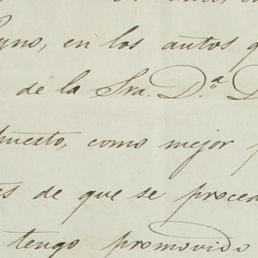 yno, en los autos q
de la Sra. D.ª D
puesto, como mejor p
es de que se proced
tengo promovido